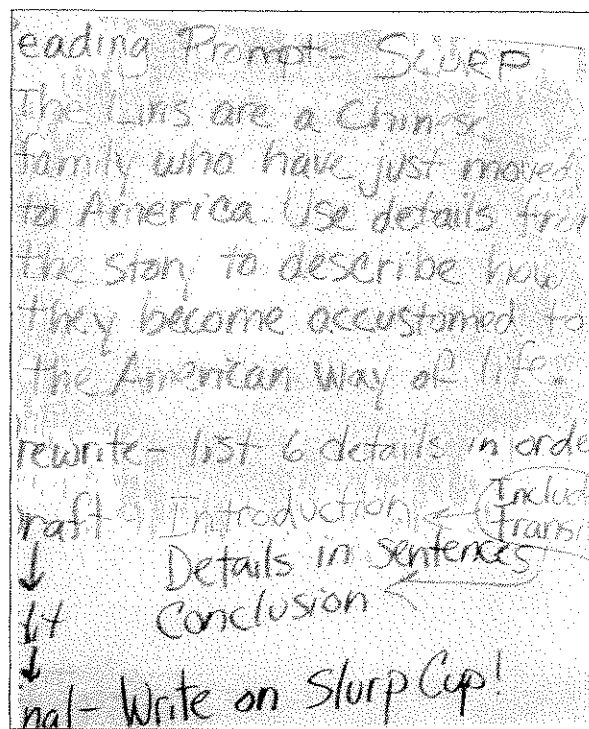 eading Prompt- SLURP
The Lins are a Chinese
family who have just moved
to America. Use details from
the story to describe how
they become accustomed to
the American Way of life.
rewrite- list 6 details in orde
raft Introduction ← Includ
transi
↓ Details in sentences
it Conclusion ←
↓
nal- Write on Slurp Cup!